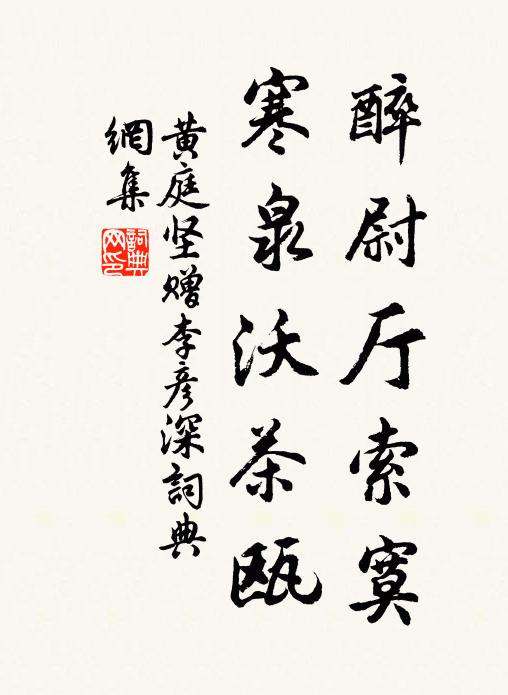 醉尉厅索寞
寒泉沃茶瓯
黄庭坚赠李彦深詞典
網集
詞典网印